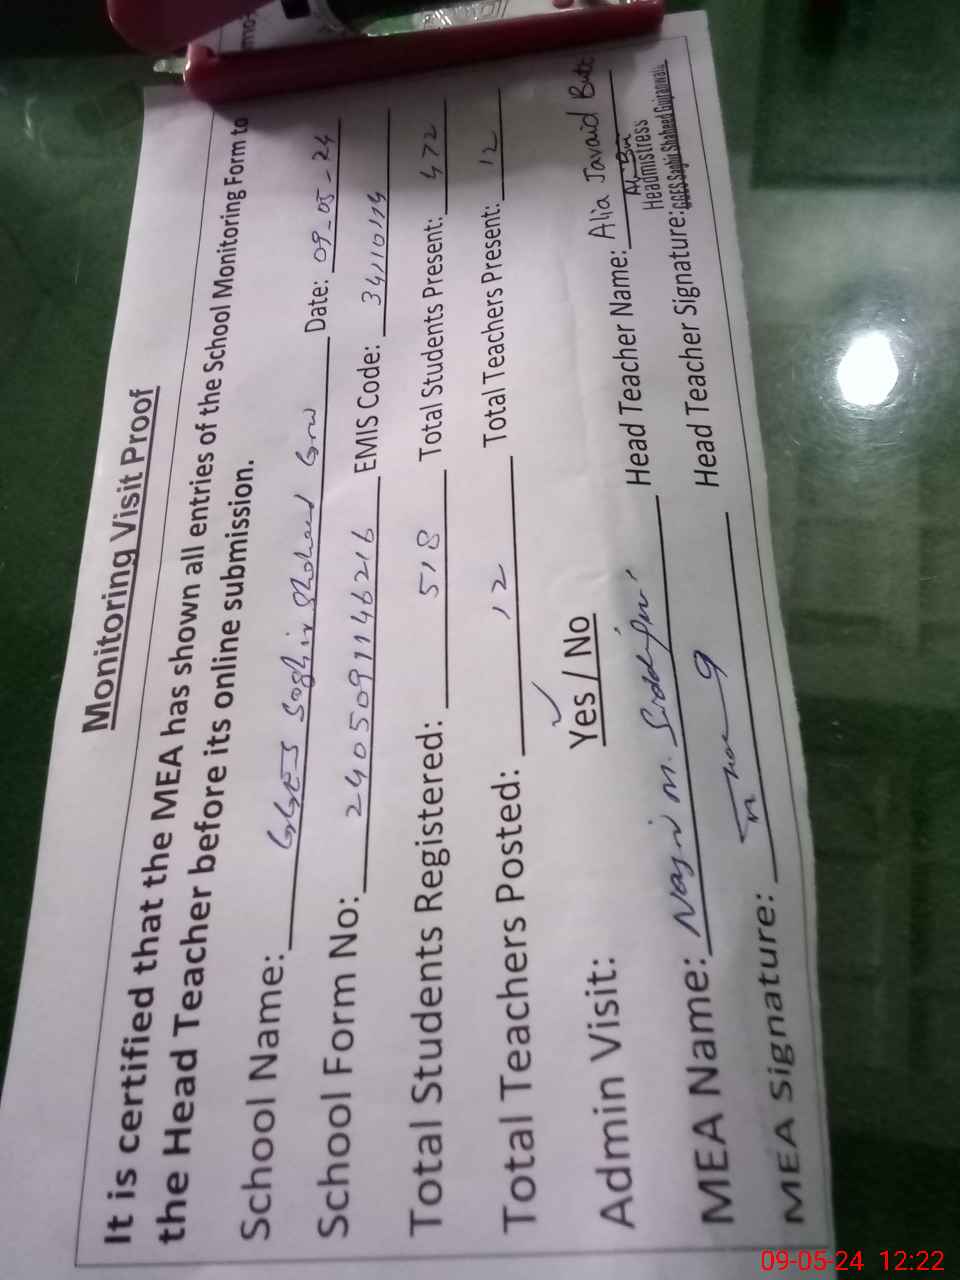 Monitoring Visit Proof
It is certified that the MEA has shown all entries of the School Monitoring Form to
the Head Teacher before its online submission.
School Name: GGES Saghir Shaheed Grw Date: 09-05-24
School Form No: 2405091146216 EMIS Code: 34110114
Total Students Registered: 518 Total Students Present: 472
Total Teachers Posted: 12 Total Teachers Present: 12
Admin Visit: Yes / No Head Teacher Name: Alia Javaid Butt
MEA Name: M. Head Teacher Signature:
Headmistress
GGES Saghir Shaheed Gujranwala
MEA Signature:
09-05-24 12:22